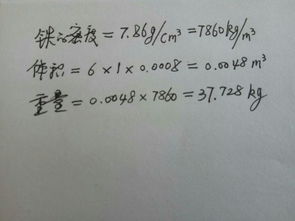 铁的密度=7.86g/cm³=7860kg/m³
体积=6×1×0.0008=0.0048m³
重量=0.0048×7860=37.728kg